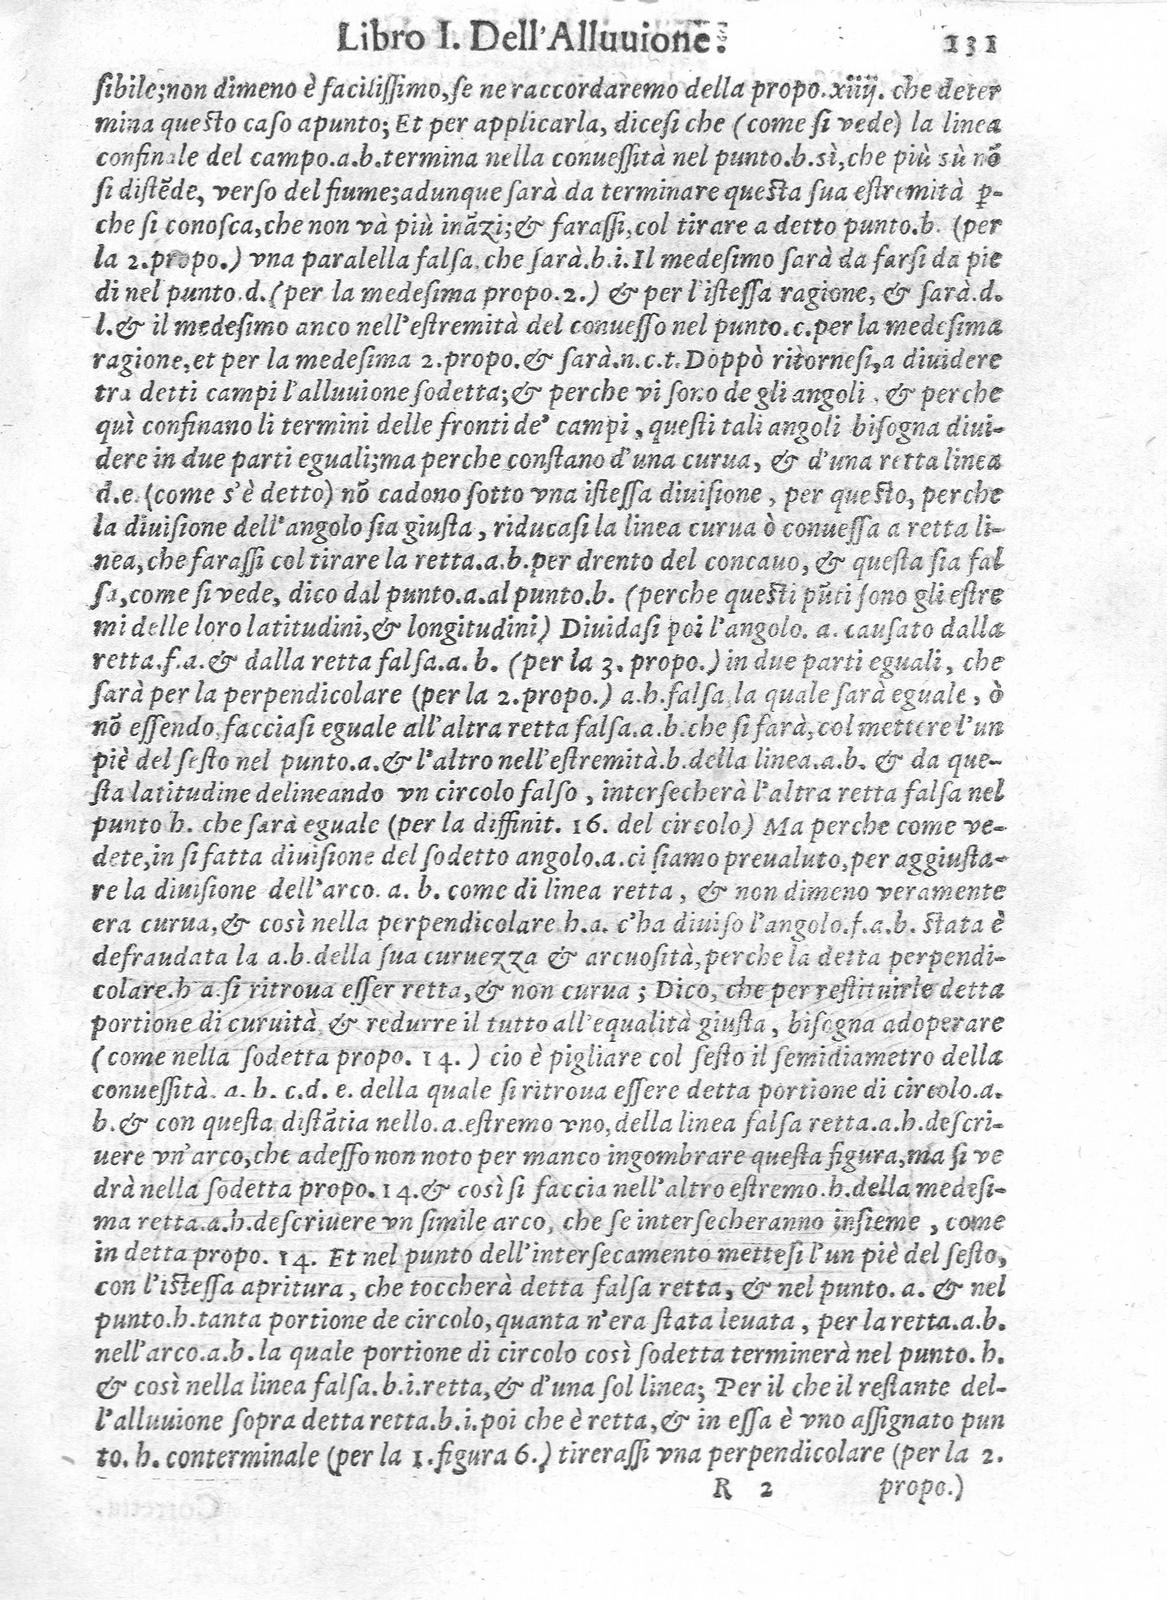 Libro I. Dell'Alluuione. 131
sibile; non dimeno è facilissimo, se ne raccordaremo della propo. xiiij. che deter
mina questo caso apunto; Et per applicarla, dicesi che (come si vede) la linea
confinale del campo.a.b.termina nella conuessità nel punto.b.sì, che più sù nõ
si distẽde, verso del fiume;adunque sarà da terminare questa sua estremità ꝑ-
che si conosca, che non và più inãzi;& farassi,col tirare a detto punto.b. (per
la 2.propo.) vna paralella falsa, che sarà.b.i.Il medesimo sarà da farsi da pie
di nel punto.d.(per la medesima propo.2.) & per l'istessa ragione, & sarà.d.
l.& il medesimo anco nell'estremità del conuesso nel punto.c.per la medesima
ragione,et per la medesima 2.propo.& sarà.n.c.t.Doppò ritornesi,a diuidere
tra detti campi l'alluuione sodetta;& perche vi sono de gli angoli, & perche
quì confinano li termini delle fronti de' campi, questi tali angoli bisogna diui-
dere in due parti eguali;ma perche constano d'una curua, & d'una retta linea
d.e.(come s'è detto) nõ cadono sotto vna istessa diuisione, per questo, perche
la diuisione dell'angolo sia giusta, riducasi la linea curua ò conuessa a retta li-
nea,che farassi col tirare la retta.a.b.per drento del concauo, & questa sia fal
sa,come si vede, dico dal punto.a.al punto.b. (perche questi pũti sono gli estre
mi delle loro latitudini,& longitudini) Diuidasi poi l'angolo. a. causato dalla
retta.f.a.& dalla retta falsa.a.b. (per la 3. propo.) in due parti eguali, che
sarà per la perpendicolare (per la 2.propo.) a.h.falsa,la quale sarà eguale, ò
nõ essendo, facciasi eguale all'altra retta falsa.a.b.che si farà,col mettere l'un
piè del sesto nel punto.a.& l'altro nell'estremità.b.della linea.a.b. & da que-
sta latitudine delineando vn circolo falso, intersecherà l'altra retta falsa nel
punto h. che sarà eguale (per la diffinit. 16. del circolo) Ma perche come ve-
dete,in si fatta diuisione del sodetto angolo.a.ci siamo preualuto,per aggiusta-
re la diuisione dell'arco. a. b. come di linea retta, & non dimeno veramente
era curua,& così nella perpendicolare.h.a. c'ha diuiso l'angolo.f.a.b. stata è
defraudata la a.b.della sua curuezza & arcuosità,perche la detta perpendi-
colare.h a.si ritroua esser retta,& non curua; Dico, che per restituirle detta
portione di curuità, & redurre il tutto all'equalità giusta, bisogna adoperare
(come nella sodetta propo. 14.) cio è pigliare col sesto il semidiametro della
conuessità. a. b. c.d. e. della quale si ritroua essere detta portione di circolo.a.
b.& con questa distãtia nello.a.estremo vno,della linea falsa retta.a.h.descri-
uere vn'arco,che adesso non noto per manco ingombrare questa figura,ma si ve
drà nella sodetta propo.14.& così si faccia nell'altro estremo.h.della medesi-
ma retta.a.h.descriuere vn simile arco, che se intersecheranno insieme, come
in detta propo. 14. Et nel punto dell'intersecamento mettesi l'un piè del sesto,
con l'istessa apritura, che toccherà detta falsa retta, & nel punto. a. & nel
punto.h.tanta portione de circolo,quanta n'era stata leuata, per la retta.a.b.
nell'arco.a.b.la quale portione di circolo così sodetta terminerà nel punto. h.
& così nella linea falsa.b.i.retta,& d'una sol linea; Per il che il restante del-
l'alluuione sopra detta retta.b.i.poi che è retta,& in essa è vno assignato pun
to. h. conterminale (per la 1.figura 6.) tirerassi vna perpendicolare (per la 2.
R 2 propo.)